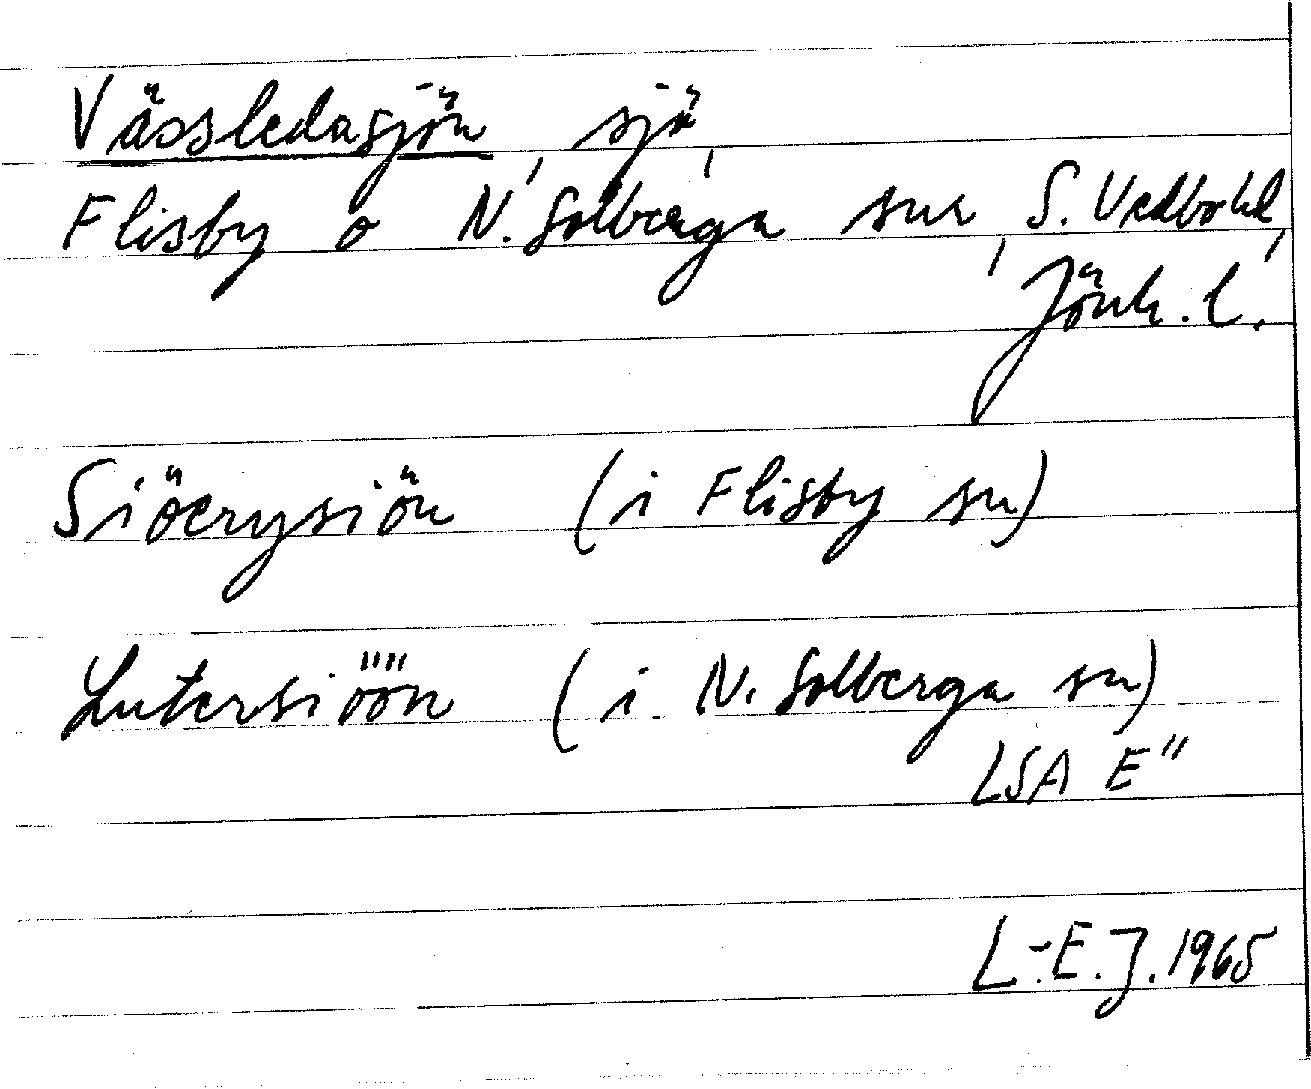 Vässledasjön, sjö,
Flisby o N. Solberga snr, S. Vedbo hd,
Jönk. l.
Siöerysiön (i Flisby sn)
Lutersiöön (i N. Solberga sn)
LSA E"
L-E.J. 1965